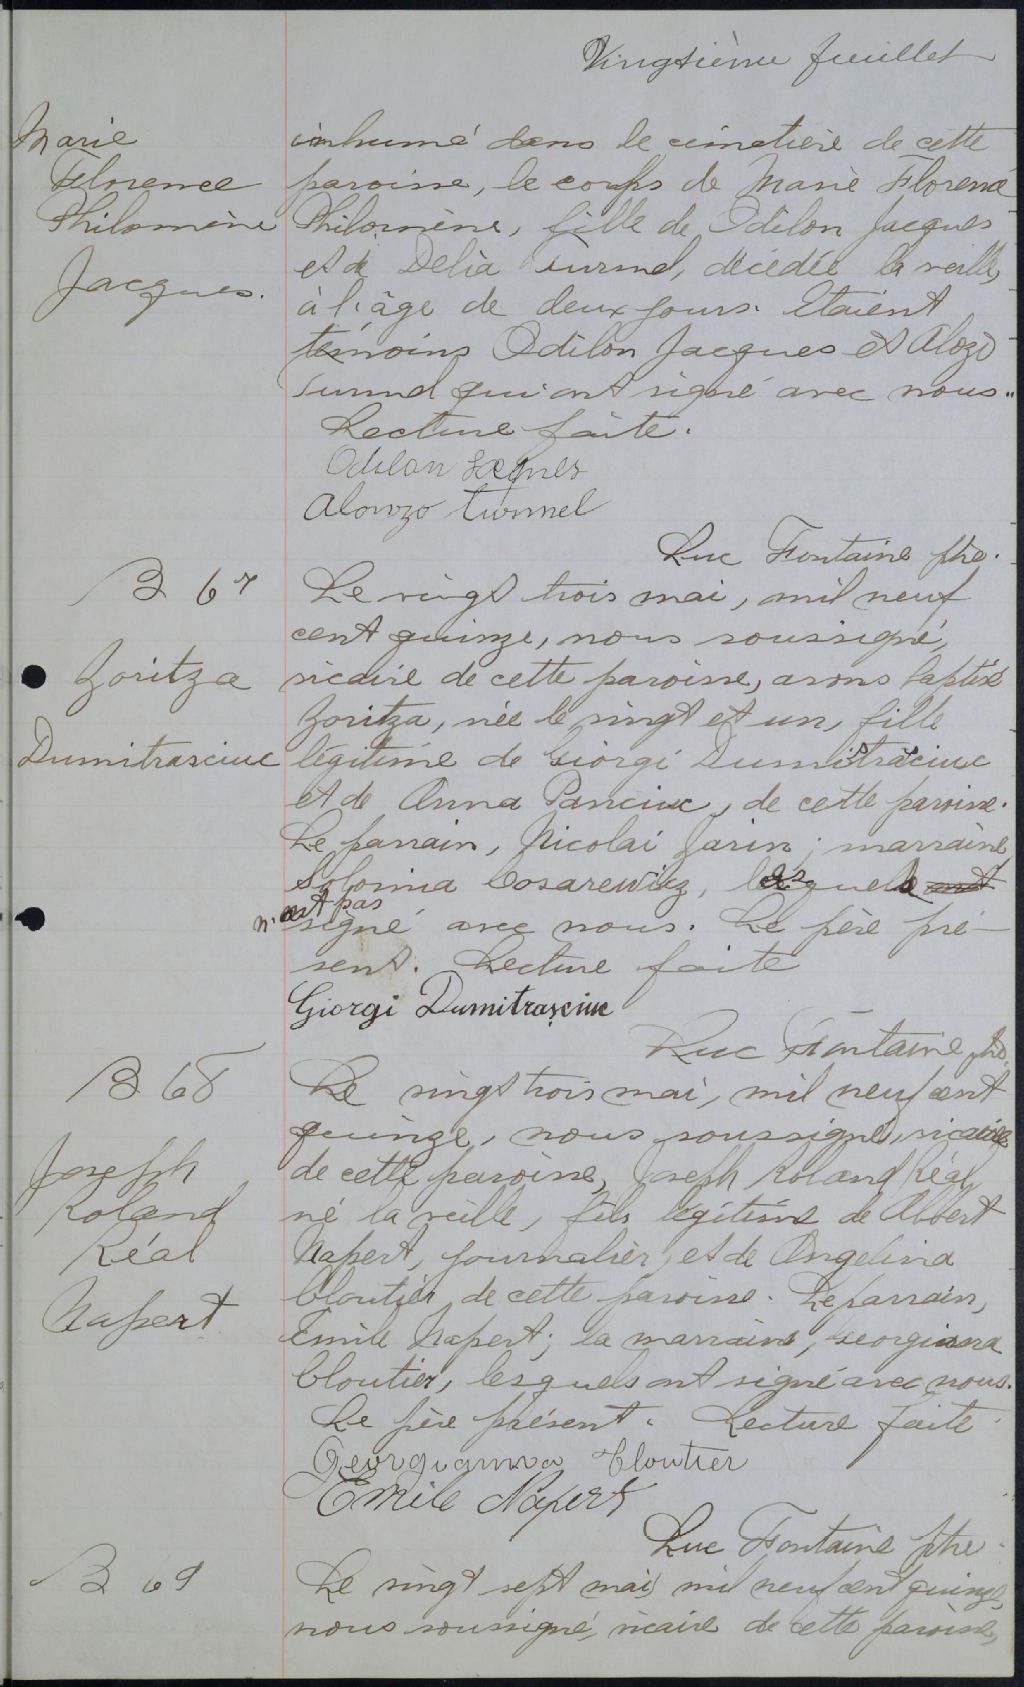 Vingtième feuillet
Marie
Florence
Philomène
Jacques.
inhumé dans le cimetière de cette
paroisse, le corps de Marie Florence
Philomène, fille de Odilon Jacques
et de Delia Turmel, décédée la veille,
à l'âge de deux jours. Etaient
témoins Odilon Jacques et Alozo
Turmel qui ont signé avec nous.
Lecture faite.
Odilon Jacques
Alonzo Turmel
Luc Fontaine ptre.
B 67
Zoritza
Dumitrasciuc
Le vingt trois mai, mil neuf
cent quinze, nous soussigné,
vicaire de cette paroisse, avons baptisé
Zoritza, née le vingt et un, fille
légitime de Giorgi Dumitrasciuc
et de Anna Panciuc, de cette paroisse.
Le parrain, Nicolai Jarin; marraine
Solomia Cosarewicz, lesquels ont
n'ont pas
signé avec nous. Le père pré-
sent. Lecture faite
Giorgi Dumitrașciuc
Luc Fontaine ptre.
B 68
Joseph
Roland
Réal
Napert
Le vingt trois mai, mil neuf cent
quinze, nous soussigné, vicaire
de cette paroisse, Joseph Roland Réal,
né la veille, fils légitime de Albert
Napert, journalier, et de Angelina
Cloutier, de cette paroisse. Le parrain,
Emile Napert; la marraine, Georgianna
Cloutier, lesquels ont signé avec nous.
Le père présent. Lecture faite.
Georgianna Cloutier
Emile Napert
Luc Fontaine ptre.
B 69
Le vingt sept mai mil neuf cent quinze,
nous soussigné, vicaire de cette paroisse,